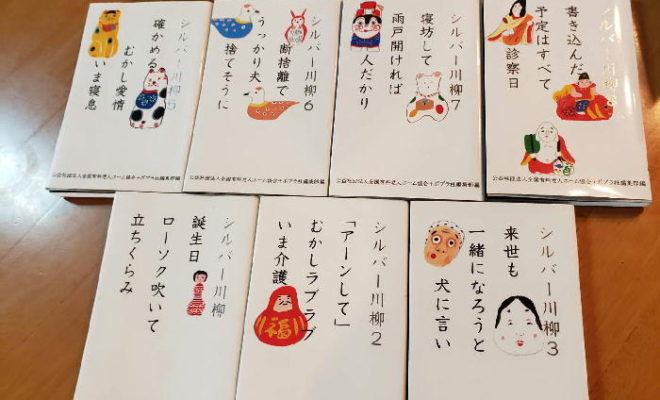 シルバー川柳5
確かめる
むかし愛情
いま寝息
公益社団法人全国有料老人ホーム協会+ポプラ社編集部編
シルバー川柳6
断捨離で
うっかり夫
捨てそうに
公益社団法人全国有料老人ホーム協会+ポプラ社編集部編
シルバー川柳7
寝坊して
雨戸開ければ
人だかり
公益社団法人全国有料老人ホーム協会+ポプラ社編集部編
シルバー川柳
書き込んだ
予定はすべて
診察日
公益社団法人全国有料老人ホーム協会+ポプラ社編集部編
シルバー川柳
誕生日
ローソク吹いて
立ちくらみ
シルバー川柳2
「アーンして」
むかしラブラブ
いま介護
福
シルバー川柳3
来世も
一緒になろうと
犬に言い